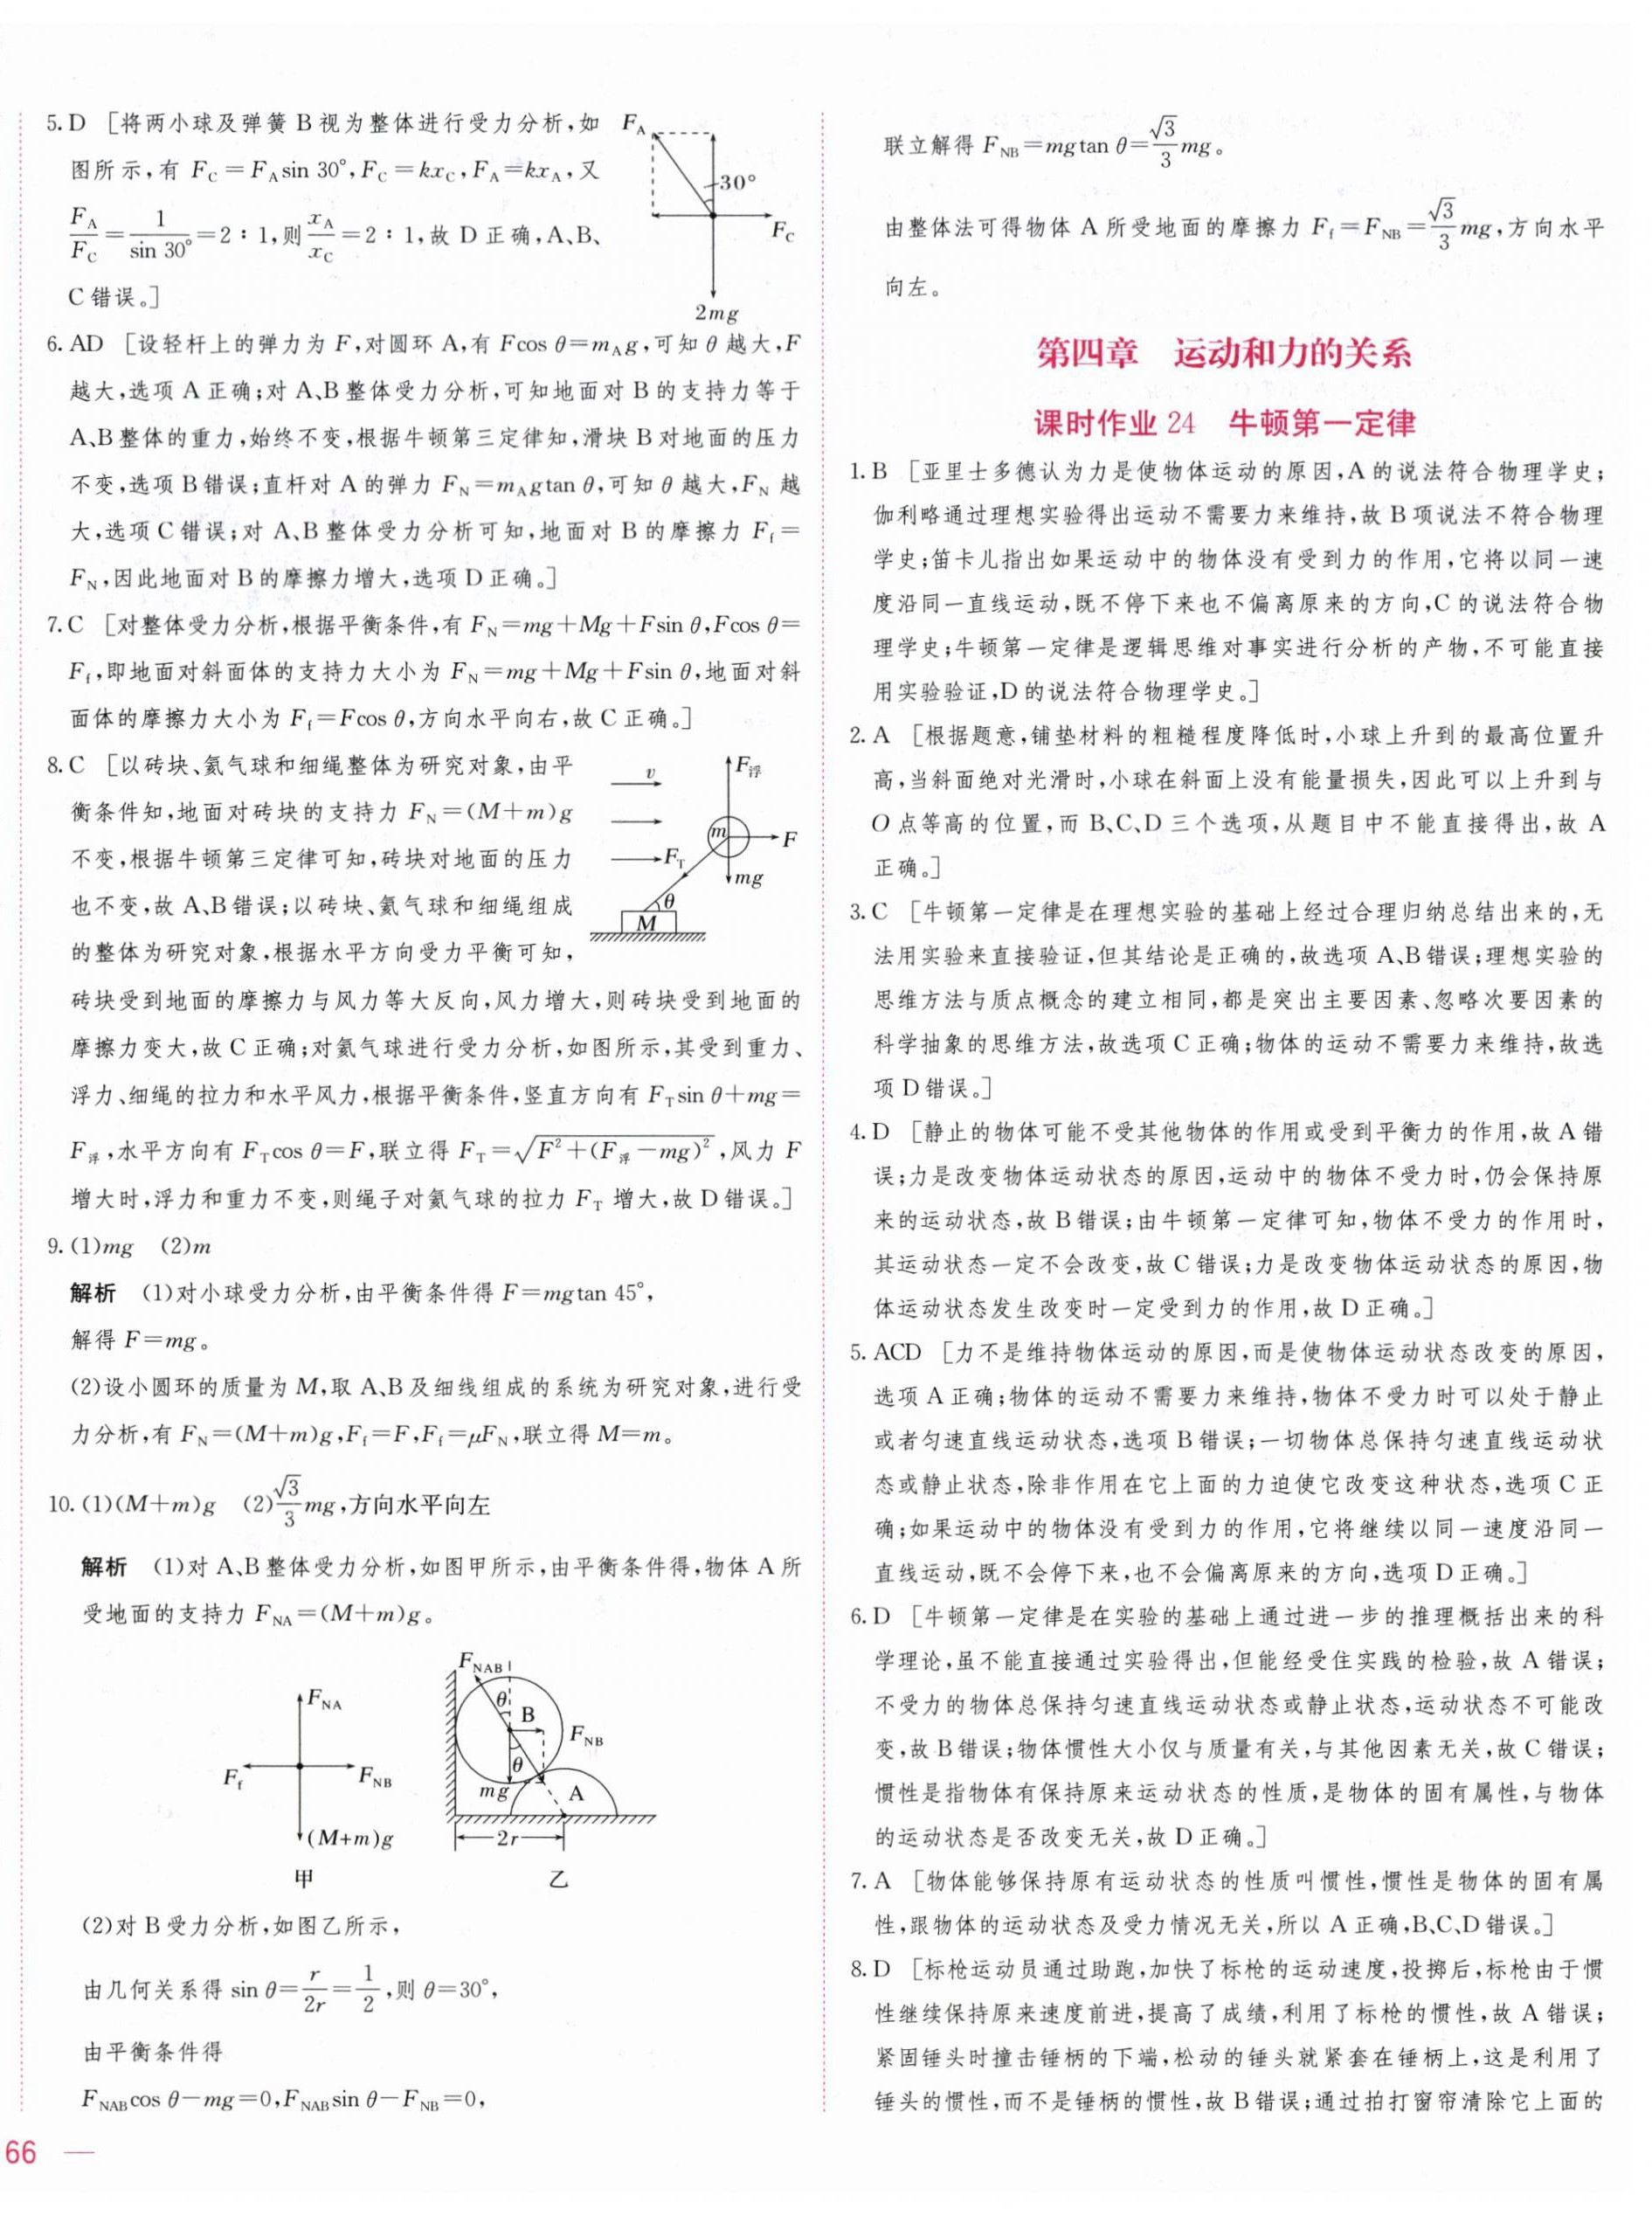 5. D [将两小球及弹簧 B 视为整体进行受力分析,如
图所示,有 F_C=F_A sin 30°,F_C=kx_C,F_A=kx_A,又
F_A/F_C=1/sin 30°=2∶1,则x_A/x_C=2∶1,故 D 正确,A、B、
C 错误。]
F_A
30°
F_C
2mg
6. AD [设轻杆上的弹力为 F,对圆环 A,有 Fcos θ=m_A g,可知 θ 越大,F
越大,选项 A 正确;对 A、B 整体受力分析,可知地面对 B 的支持力等于
A、B 整体的重力,始终不变,根据牛顿第三定律知,滑块 B 对地面的压力
不变,选项 B 错误;直杆对 A 的弹力 F_N=m_A gtan θ,可知 θ 越大,F_N 越
大,选项 C 错误;对 A、B 整体受力分析可知,地面对 B 的摩擦力 F_f=
F_N,因此地面对 B 的摩擦力增大,选项 D 正确。]
7. C [对整体受力分析,根据平衡条件,有 F_N=mg+Mg+Fsin θ,Fcos θ=
F_f,即地面对斜面体的支持力大小为 F_N=mg+Mg+Fsin θ,地面对斜
面体的摩擦力大小为 F_f=Fcos θ,方向水平向右,故 C 正确。]
8. C [以砖块、氦气球和细绳整体为研究对象,由平
衡条件知,地面对砖块的支持力 F_N=(M+m)g
不变,根据牛顿第三定律可知,砖块对地面的压力
也不变,故 A、B 错误;以砖块、氦气球和细绳组成
的整体为研究对象,根据水平方向受力平衡可知,
v
F_浮
m
F
F_T
mg
θ
M
砖块受到地面的摩擦力与风力等大反向,风力增大,则砖块受到地面的
摩擦力变大,故 C 正确;对氦气球进行受力分析,如图所示,其受到重力、
浮力、细绳的拉力和水平风力,根据平衡条件,竖直方向有 F_T sin θ+mg=
F_浮,水平方向有 F_T cos θ=F,联立得 F_T=√(F²+(F_浮-mg)²),风力 F
增大时,浮力和重力不变,则绳子对氦气球的拉力 F_T 增大,故 D 错误。]
9. (1)mg (2)m
解析 (1)对小球受力分析,由平衡条件得 F=mgtan 45°,
解得 F=mg。
(2)设小圆环的质量为 M,取 A、B 及细线组成的系统为研究对象,进行受
力分析,有 F_N=(M+m)g,F_f=F,F_f=μF_N,联立得 M=m。
10. (1)(M+m)g (2)√3/3 mg,方向水平向左
解析 (1)对 A、B 整体受力分析,如图甲所示,由平衡条件得,物体 A 所
受地面的支持力 F_NA=(M+m)g。
F_NA
F_f
F_NB
(M+m)g
甲
F_NAB
θ
B
F_NB
θ
mg
A
2r
乙
(2)对 B 受力分析,如图乙所示,
由几何关系得 sin θ=r/2r=1/2,则 θ=30°,
由平衡条件得
F_NAB cos θ-mg=0,F_NAB sin θ-F_NB=0,
66
联立解得 F_NB=mgtan θ=√3/3 mg。
由整体法可得物体 A 所受地面的摩擦力 F_f=F_NB=√3/3 mg,方向水平
向左。
第四章 运动和力的关系
课时作业 24 牛顿第一定律
1. B [亚里士多德认为力是使物体运动的原因,A 的说法符合物理学史;
伽利略通过理想实验得出运动不需要力来维持,故 B 项说法不符合物理
学史;笛卡儿指出如果运动中的物体没有受到力的作用,它将以同一速
度沿同一直线运动,既不停下来也不偏离原来的方向,C 的说法符合物
理学史;牛顿第一定律是逻辑思维对事实进行分析的产物,不可能直接
用实验验证,D 的说法符合物理学史。]
2. A [根据题意,铺垫材料的粗糙程度降低时,小球上升到的最高位置升
高,当斜面绝对光滑时,小球在斜面上没有能量损失,因此可以上升到与
O 点等高的位置,而 B、C、D 三个选项,从题目中不能直接得出,故 A
正确。]
3. C [牛顿第一定律是在理想实验的基础上经过合理归纳总结出来的,无
法用实验来直接验证,但其结论是正确的,故选项 A、B 错误;理想实验的
思维方法与质点概念的建立相同,都是突出主要因素、忽略次要因素的
科学抽象的思维方法,故选项 C 正确;物体的运动不需要力来维持,故选
项 D 错误。]
4. D [静止的物体可能不受其他物体的作用或受到平衡力的作用,故 A 错
误;力是改变物体运动状态的原因,运动中的物体不受力时,仍会保持原
来的运动状态,故 B 错误;由牛顿第一定律可知,物体不受力的作用时,
其运动状态一定不会改变,故 C 错误;力是改变物体运动状态的原因,物
体运动状态发生改变时一定受到力的作用,故 D 正确。]
5. ACD [力不是维持物体运动的原因,而是使物体运动状态改变的原因,
选项 A 正确;物体的运动不需要力来维持,物体不受力时可以处于静止
或者匀速直线运动状态,选项 B 错误;一切物体总保持匀速直线运动状
态或静止状态,除非作用在它上面的力迫使它改变这种状态,选项 C 正
确;如果运动中的物体没有受到力的作用,它将继续以同一速度沿同一
直线运动,既不会停下来,也不会偏离原来的方向,选项 D 正确。]
6. D [牛顿第一定律是在实验的基础上通过进一步的推理概括出来的科
学理论,虽不能直接通过实验得出,但能经受住实践的检验,故 A 错误;
不受力的物体总保持匀速直线运动状态或静止状态,运动状态不可能改
变,故 B 错误;物体惯性大小仅与质量有关,与其他因素无关,故 C 错误;
惯性是指物体有保持原来运动状态的性质,是物体的固有属性,与物体
的运动状态是否改变无关,故 D 正确。]
7. A [物体能够保持原有运动状态的性质叫惯性,惯性是物体的固有属
性,跟物体的运动状态及受力情况无关,所以 A 正确,B、C、D 错误。]
8. D [标枪运动员通过助跑,加快了标枪的运动速度,投掷后,标枪由于惯
性继续保持原来速度前进,提高了成绩,利用了标枪的惯性,故 A 错误;
紧固锤头时撞击锤柄的下端,松动的锤头就紧套在锤柄上,这是利用了
锤头的惯性,而不是锤柄的惯性,故 B 错误;通过拍打窗帘清除它上面的